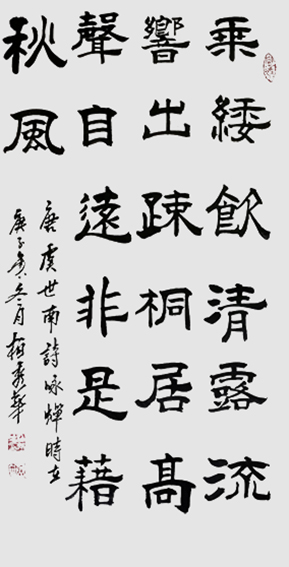 垂緌飲清露流
響出疎桐居高
聲自遠非是藉
秋風
唐虞世南詩咏蟬時在
庚子冬月秀華